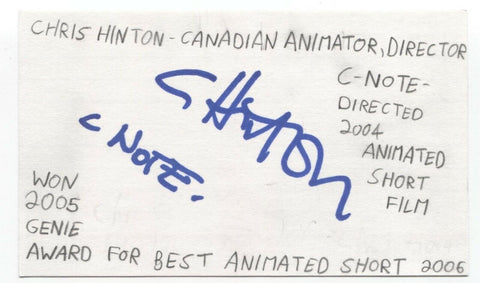 CHRIS HINTON - CANADIAN ANIMATOR, DIRECTOR
C-NOTE-
DIRECTED
2004
ANIMATED
SHORT
FILM
C HINTON
C NOTE.
WON
2005
GENIE
AWARD FOR BEST ANIMATED SHORT 2006